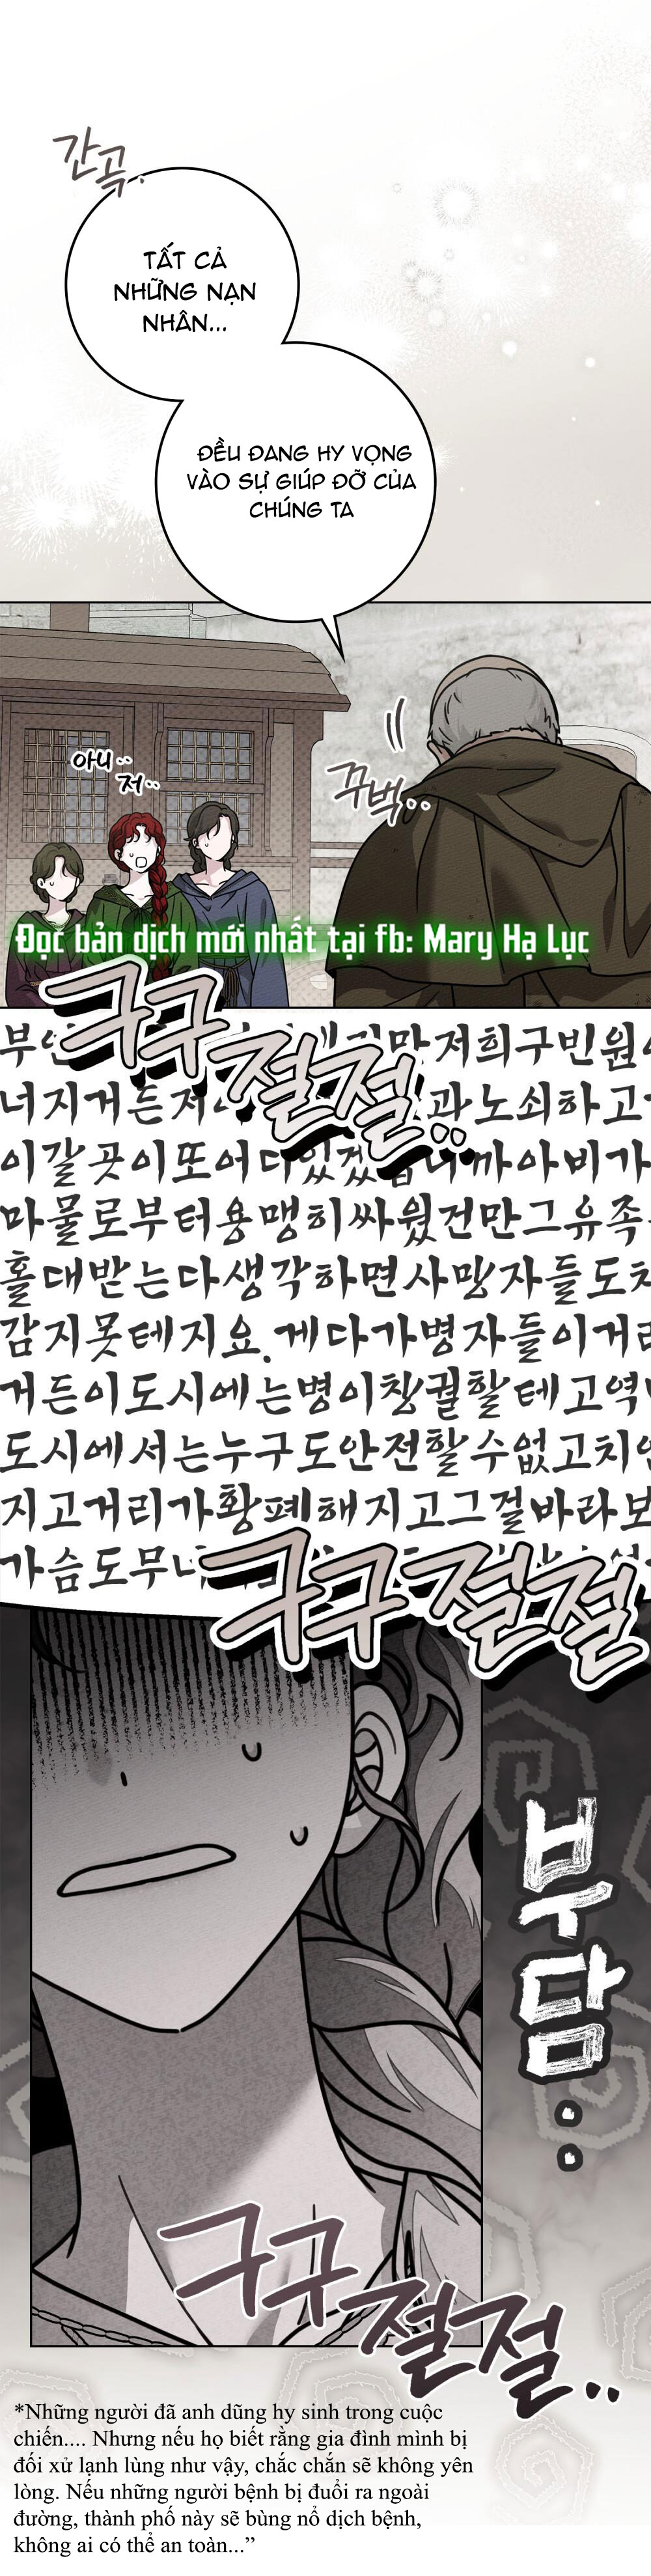 간곡..
TẤT CẢ
NHỮNG NẠN
NHÂN...
ĐỀU ĐANG HY VỌNG
VÀO SỰ GIÚP ĐỠ CỦA
CHÚNG TA
아니..
저..
꾸벅..
Đọc bản dịch mới nhất tại fb: Mary Hạ Lục
구구절절..
저희구빈원
너지거든 과노쇠하고
이갈곳이또어디있겠습니까아비가
마물로부터용맹히싸웠건만그유족
홀대받는다생각하면사망자들도
감지못테지요.게다가병자들이거리
거든이도시에는병이창궐할테고역
도시에서는누구도안전할수없고치안
지고거리가황폐해지고그걸바라보
가슴도무너
구구절절
부담..
구구절절..
*Những người đã anh dũng hy sinh trong cuộc
chiến.... Nhưng nếu họ biết rằng gia đình mình bị
đối xử lạnh lùng như vậy, chắc chắn sẽ không yên
lòng. Nếu những người bệnh bị đuổi ra ngoài
đường, thành phố này sẽ bùng nổ dịch bệnh,
không ai có thể an toàn...”